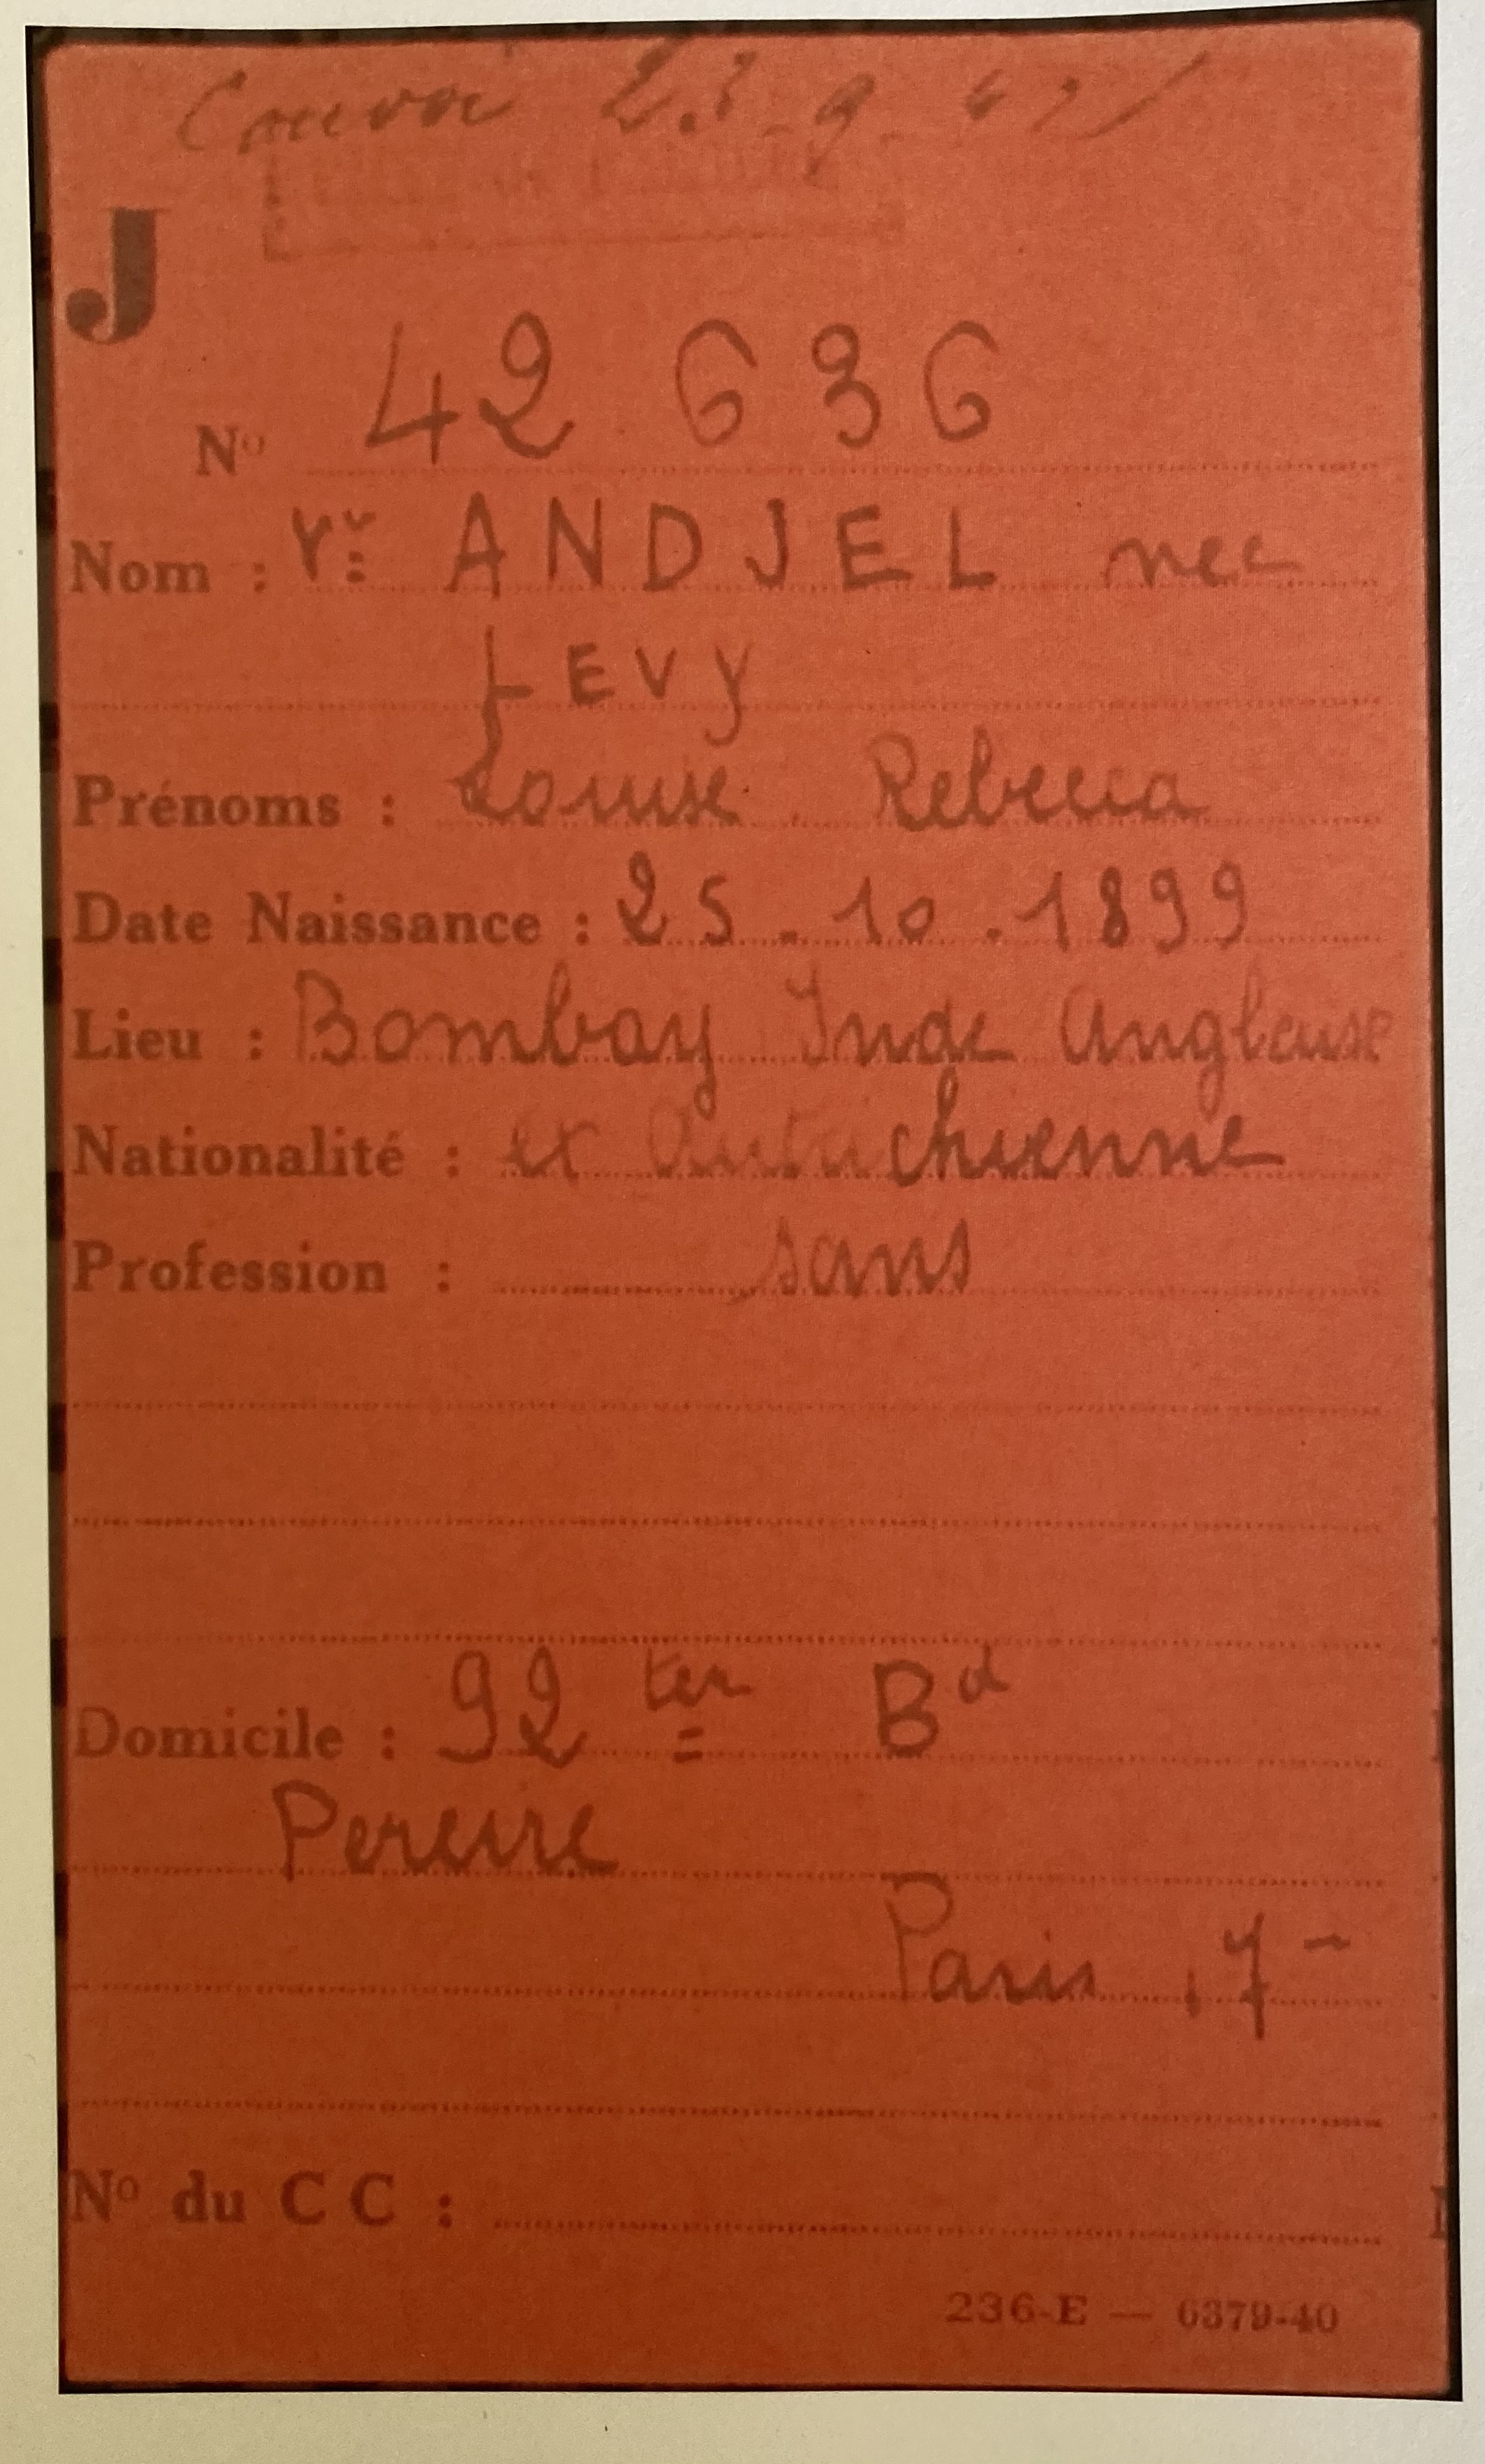 Convoi 23-9-42
J
No 42 636
Nom : Vve ANDJEL nee
LEVY
Prénoms : Louise Rebecca
Date Naissance : 25.10.1899
Lieu : Bombay Inde Anglaise
Nationalité : ex Autrichienne
Profession : sans
Domicile : 92 ter Bd
Pereire
Paris 17
No du C C :
236-E — 6379-40